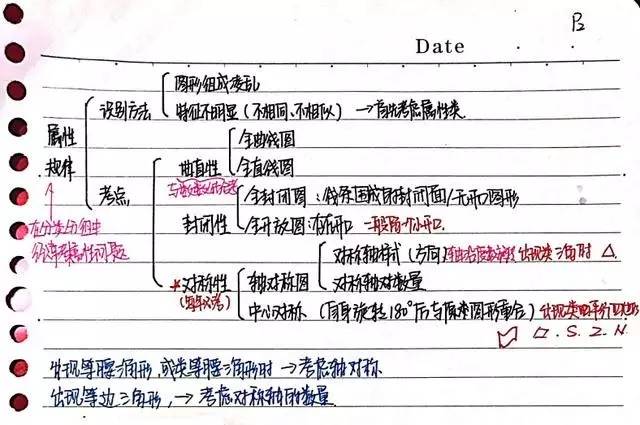 B
Date
图形组成凌乱
识别方法
特征不明显(不相同、不相似) → 首先考虑属性类
属性
规律
全曲线图
曲直性
全直线图
考点
全封闭图:线条围成的封闭面/无开口图形
封闭性
全开放图:有开口 一般留一个小开口.
在分类分组中
对称轴样式(方向) 出现类三角时 △.
*对称性
(每年必考)
轴对称图
对称轴对数量
中心对称 (自身旋转180°后与原来图形重合)
▱. S. Z. N.
出现等腰三角形,或类等腰三角形时 → 考虑轴对称
出现等边三角形, → 考虑对称轴的数量